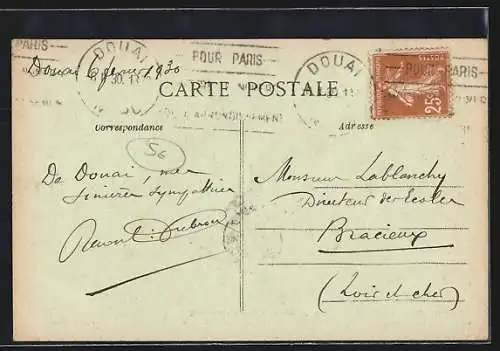 PARIS
DOUAI
POUR PARIS
DOUAI
POUR PARIS
Douai 6 février 1930
30
CARTE POSTALE
25c
Correspondance
Adresse
56
De Douai, mes
sincères sympathies
Monsieur Lablanchy
Directeur des Ecoles
Bracieux
(Loir et cher)